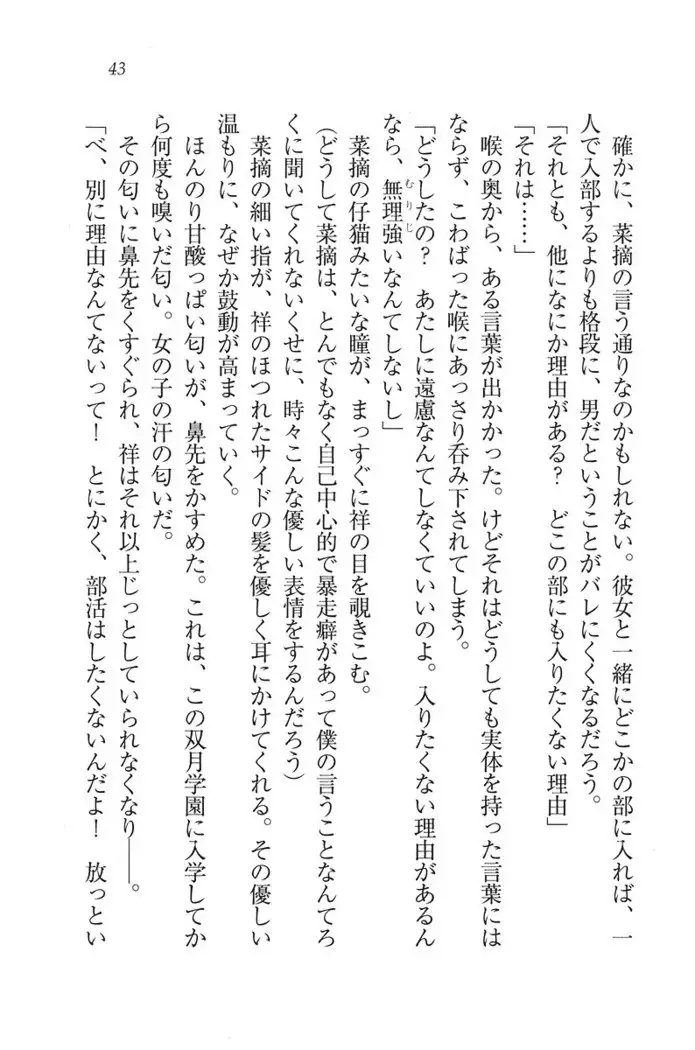 43
確かに、菜摘の言う通りなのかもしれない。彼女と一緒にどこかの部に入れば、一
人で入部するよりも格段に、男だということがバレにくくなるだろう。
「それとも、他になにか理由がある？　どこの部にも入りたくない理由」
「それは……」
喉の奥から、ある言葉が出かかった。けどそれはどうしても実体を持った言葉には
ならず、こわばった喉にあっさり呑み下されてしまう。
「どうしたの？　あたしに遠慮なんてしなくていいのよ。入りたくない理由があるん
なら、無理強いなんてしないし」
むりじ
菜摘の仔猫みたいな瞳が、まっすぐに祥の目を覗きこむ。
（どうして菜摘は、とんでもなく自己中心的で暴走癖があって僕の言うことなんてろ
くに聞いてくれないくせに、時々こんな優しい表情をするんだろう）
菜摘の細い指が、祥のほつれたサイドの髪を優しく耳にかけてくれる。その優しい
温もりに、なぜか鼓動が高まっていく。
ほんのり甘酸っぱい匂いが、鼻先をかすめた。これは、この双月学園に入学してか
ら何度も嗅いだ匂い。女の子の汗の匂いだ。
その匂いに鼻先をくすぐられ、祥はそれ以上じっとしていられなくなり――。
「べ、別に理由なんてないって！　とにかく、部活はしたくないんだよ！　放っとい